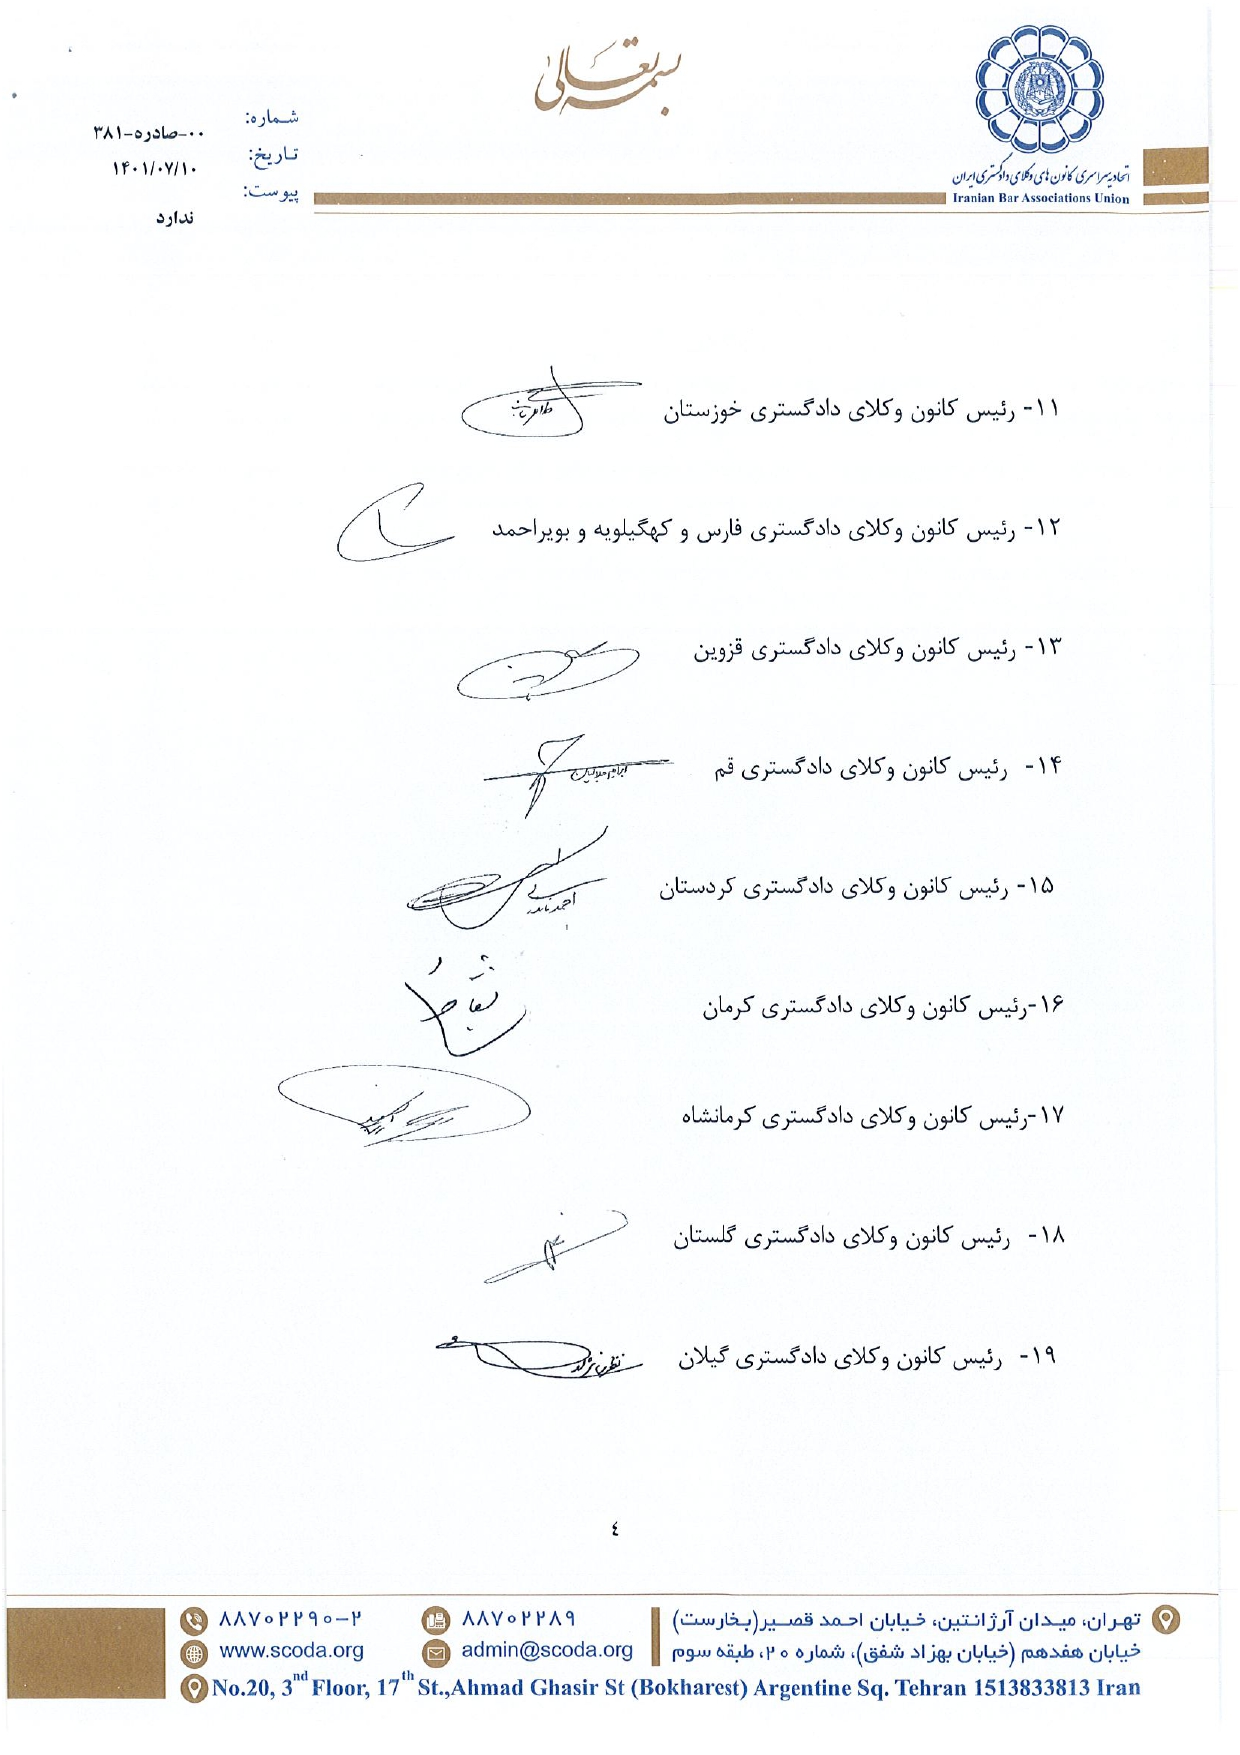 بسمه تعالی
اتحادیه سراسری کانون های وکلای دادگستری ایران
Iranian Bar Associations Union
شماره: ۰۰-صادره-۳۸۱
تاریخ: ۱۴۰۱/۰۷/۱۰
پیوست:
ندارد
۱۱- رئیس کانون وکلای دادگستری خوزستان
۱۲- رئیس کانون وکلای دادگستری فارس و کهگیلویه و بویراحمد
۱۳- رئیس کانون وکلای دادگستری قزوین
۱۴- رئیس کانون وکلای دادگستری قم
۱۵- رئیس کانون وکلای دادگستری کردستان
۱۶-رئیس کانون وکلای دادگستری کرمان
۱۷-رئیس کانون وکلای دادگستری کرمانشاه
۱۸- رئیس کانون وکلای دادگستری گلستان
۱۹- رئیس کانون وکلای دادگستری گیلان
٤
تهران، میدان آرژانتین، خیابان احمد قصیر(بخارست)
خیابان هفدهم (خیابان بهزاد شفق)، شماره ۲۰، طبقه سوم
۸۸۷۰۲۲۸۹
admin@scoda.org
۸۸۷۰۲۲۹۰-۲
www.scoda.org
No.20, 3nd Floor, 17th St.,Ahmad Ghasir St (Bokharest) Argentine Sq. Tehran 1513833813 Iran